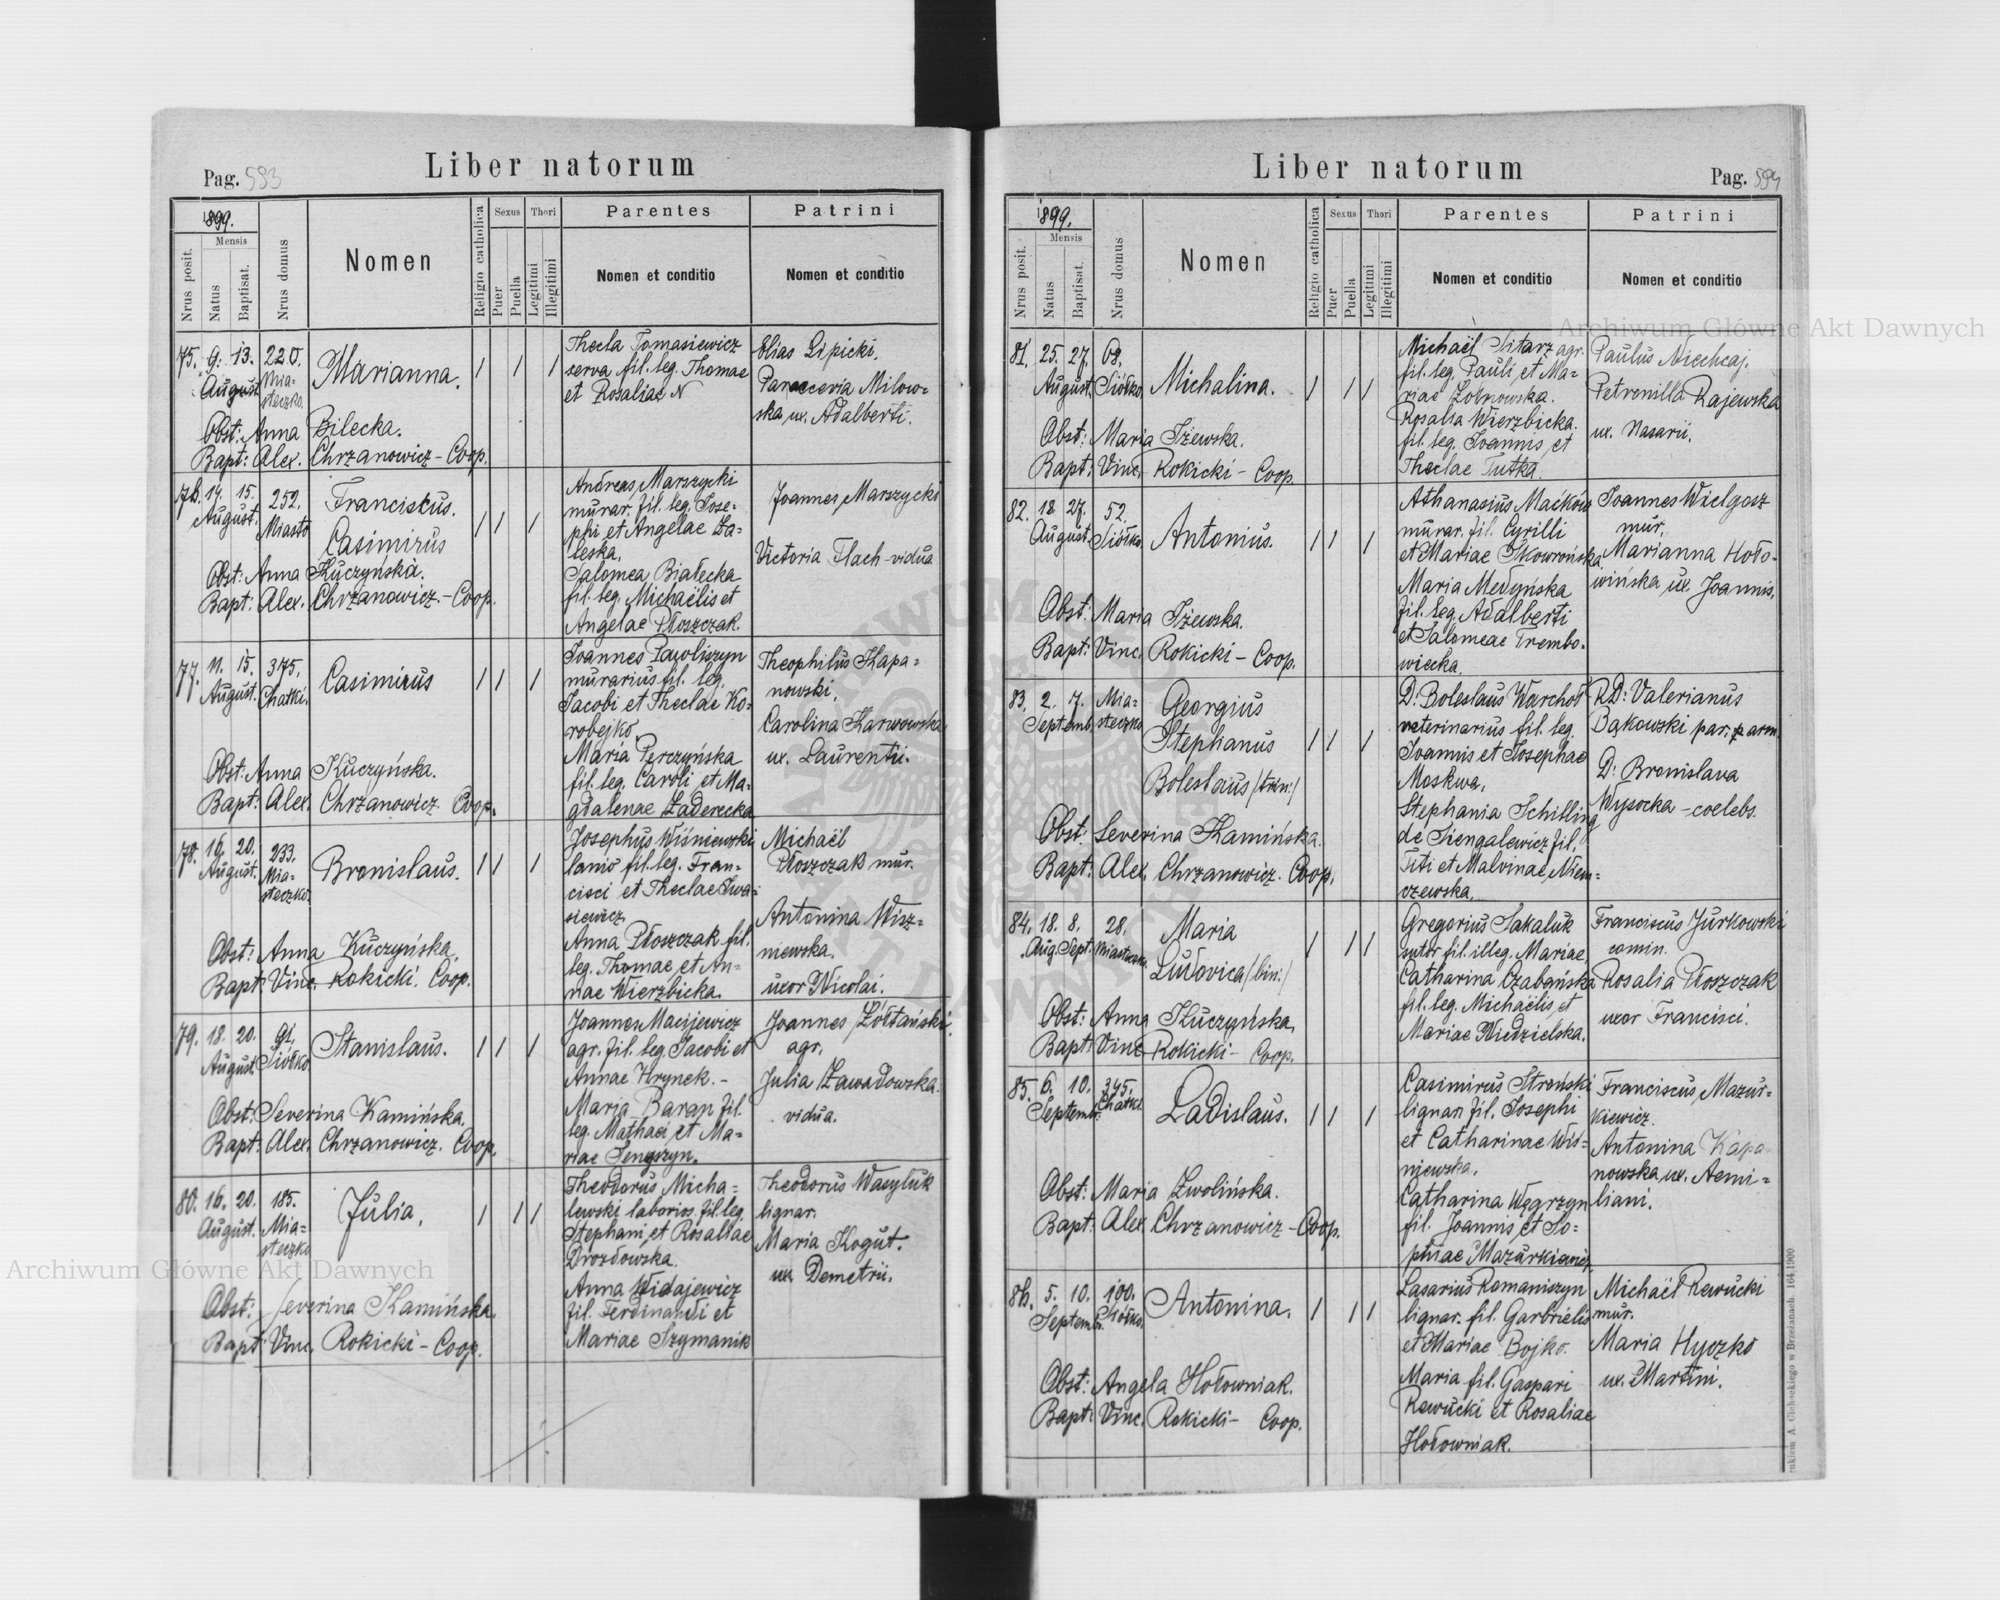 Pag. 593
Liber natorum
1899.
Nrus posit.
Mensis
Natus
Baptisat.
Nrus domus
Nomen
Religio catholica
Sexus
Puer
Puella
Thori
Legitimi
Illegitimi
Parentes
Nomen et conditio
Patrini
Nomen et conditio
75. 9. 13. 220.
August Mia-
steczko.
Marianna.
Obst: Anna Bilecka.
Bapt: Alex. Chrzanowicz - Coop.
Thecla Tomasiewicz
serva fil. leg. Thomae
et Rosaliae N
Elias Lipicki.
Paraceria Milow-
ska ux. Adalberti.
76. 14. 15. 252.
August. Miasto
Franciscus.
Casimirus
Obst: Anna Kuczyńska.
Bapt: Alex. Chrzanowicz. - Coop.
Andreas Marszycki
murar. fil. leg. Jose-
phi et Angelae Za-
leska.
Salomea Białecka
fil. leg. Michaëlis et
Angelae Płoszczak.
Joannes Marszycki
Victoria Flach - vidua
77. 11. 15. 375.
August. Chatki.
Casimirus
Obst: Anna Kuczyńska.
Bapt: Alex. Chrzanowicz. Coop.
Joannes Pawliszyn
murarius fil. leg.
Jacobi et Theclae Ko-
robejko.
Maria Perczyńska
fil. leg. Caroli et Ma-
gdalenae Zaderecka
Theophilus Kapa-
nowski.
Carolina Karwowska
ux. Laurentii.
78. 16. 20. 233.
August. Mia-
steczko.
Bronislaus.
Obst: Anna Kuczyńska.
Bapt: Vinc. Rokicki. Coop.
Josephus Wiśniewski
lanio fil. leg. Fran-
cisci et Theclae Iwa-
siewicz
Anna Płoszczak fil.
leg. Thomae et An-
nae Wierzbicka.
Michaël
Płoszczak mur.
Antonina Wisz-
niewska.
uxor Nicolai.
79. 18. 20. 91.
August. Siółko
Stanislaus.
Obst: Severina Kamińska.
Bapt: Alex. Chrzanowicz. Coop.
Joannes Macijewicz
agr. fil. leg. Jacobi et
Annae Hrynek. -
Maria Baran fil.
leg. Mathaei et Ma-
riae Senyszyn.
Joannes Żółtański
agr.
Julia Zawadowska.
vidua.
80. 16. 20. 185.
August. Mia-
steczko
Julia.
Obst: Severina Kamińska.
Bapt: Vinc. Rokicki - Coop.
Theodorus Micha-
lewski laborios. fil. leg.
Stephani et Rosaliae
Drozdowska.
Anna Widajewicz
fil. Ferdinandi et
Mariae Szymanik
Theodorus Wasyluk
lignar.
Maria Kogut.
ux. Demetrii.
Liber natorum
Pag. 594
1899.
Nrus posit.
Mensis
Natus
Baptisat.
Nrus domus
Nomen
Religio catholica
Sexus
Puer
Puella
Thori
Legitimi
Illegitimi
Parentes
Nomen et conditio
Patrini
Nomen et conditio
81. 25. 27. 68.
August. Siółko.
Michalina.
Obst: Maria Iżewska.
Bapt: Vinc. Rokicki - Coop.
Michaël Sitarz agr.
fil. leg. Pauli et Ma-
riae Żółnowska.
Rosalia Wierzbicka.
fil. leg. Joannis et
Theclae Tutka.
Paulus Niechcaj.
Petronilla Rajewska
ux. Nasarii.
82. 18. 27. 52.
August. Siółko.
Antonius.
Obst: Maria Iżewska.
Bapt: Vinc. Rokicki - Coop.
Athanasius Maćkow
murar. fil. Cyrilli
et Mariae Skowrońska.
Maria Medyńska
fil. leg. Adalberti
et Salomeae Trembo-
wiecka.
Joannes Wielgosz
mur.
Marianna Hoło-
wińska ux. Joannis.
83. 2. 7. Mia-
Septemb. steczko
Georgius
Stephanus
Boleslaus /:trin:/
Obst: Severina Kamińska.
Bapt: Alex. Chrzanowicz. Coop.
D: Boleslaus Warchoł
veterinarius fil. leg.
Joannis et Josephae
Moskwa.
Stephania Schilling
de Siengalewicz fil.
Titi et Malvinae Niem-
czewska.
RD: Valerianus
Bąkowski par. arm.
D: Bronislava
Wysocka - coelebs.
84. 18. 8. 28.
Aug. Sept. Miasteczko.
Maria
Ludovica /:bin:/
Obst: Anna Kuczyńska.
Bapt: Vinc. Rokicki - Coop.
Gregorius Sakaluk
sutor fil. illeg. Mariae.
Catharina Czabańska
fil. leg. Michaëlis et
Mariae Niedzielska.
Franciscus Jurkowski
comin.
Rosalia Płoszczak
uxor Francisci.
85. 6. 10. 345.
Septemb. Chatki
Ladislaus.
Obst: Maria Zwolińska.
Bapt: Alex. Chrzanowicz - Coop.
Casimirus Stroński
lignar. fil. Josephi
et Catharinae Wiś-
niewska.
Catharina Węgrzyn
fil. Joannis et So-
phiae Mazurkiewicz
Franciscus Mazur-
kiewicz.
Antonina Kapa-
nowska ux. Aemi-
liani.
86. 5. 10. 100.
Septemb. Siółko.
Antonina.
Obst: Angela Hołowniak.
Bapt: Vinc. Rokicki - Coop.
Lasarius Romaniszyn
lignar. fil. Garbrielis
et Mariae Bojko.
Maria fil. Gaspari
Rewucki et Rosaliae
Hołowniak.
Michaël Rewucki
mur.
Maria Hyczko
ux. Martini.
Archiwum Główne Akt Dawnych
Archiwum Główne Akt Dawnych